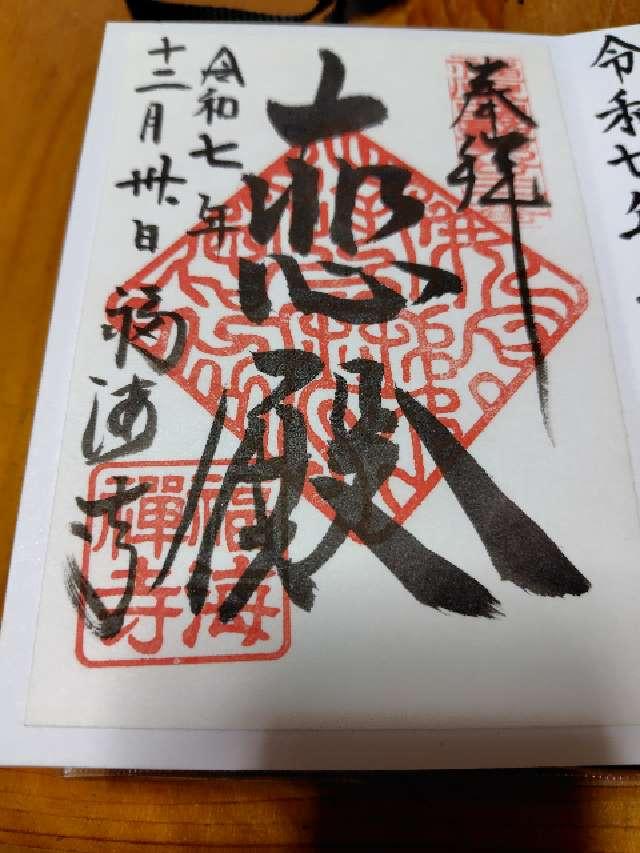 令和七年
奉拝
大悲殿
令和七年
十二月卅日
福海寺
福海
禅寺